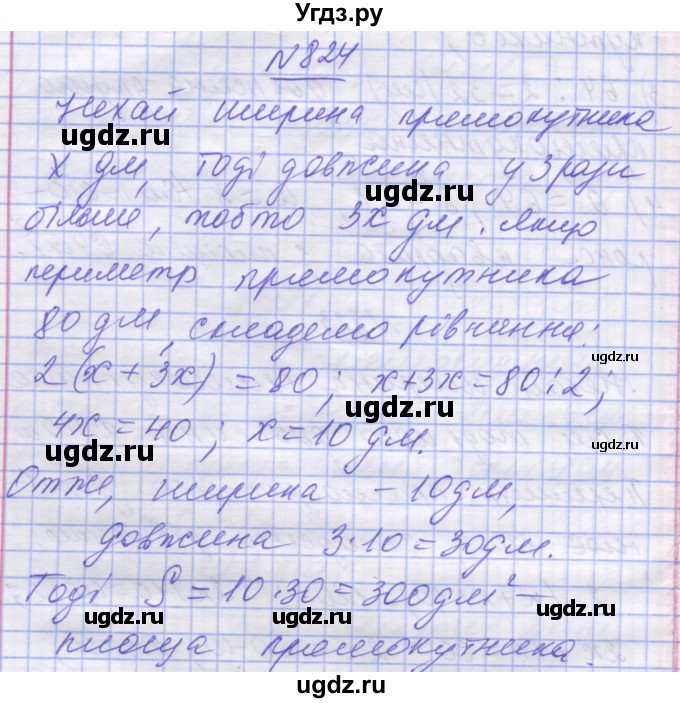 Угдз.ру
№824
Нехай ширина прямокутника
ugdz.ru
x дм, тоді довжина у 3 рази
ugdz.ru
більше, тобто 3x дм. Якщо
ugdz.ru
периметр прямокутника
80 дм, складемо рівняння:
ugdz.ru
ugdz.ru
2(x + 3x) = 80; x+3x=80:2;
ugdz.ru
4x = 40; x = 10 дм.
ugdz.ru
Отже, ширина – 10дм,
ugdz.ru
довжина 3·10=30дм.
ugdz.ru
Тоді S = 10·30=300дм² –
ugdz.ru
ugdz.ru
площа прямокутника.
ugdz.ru
ugdz.ru